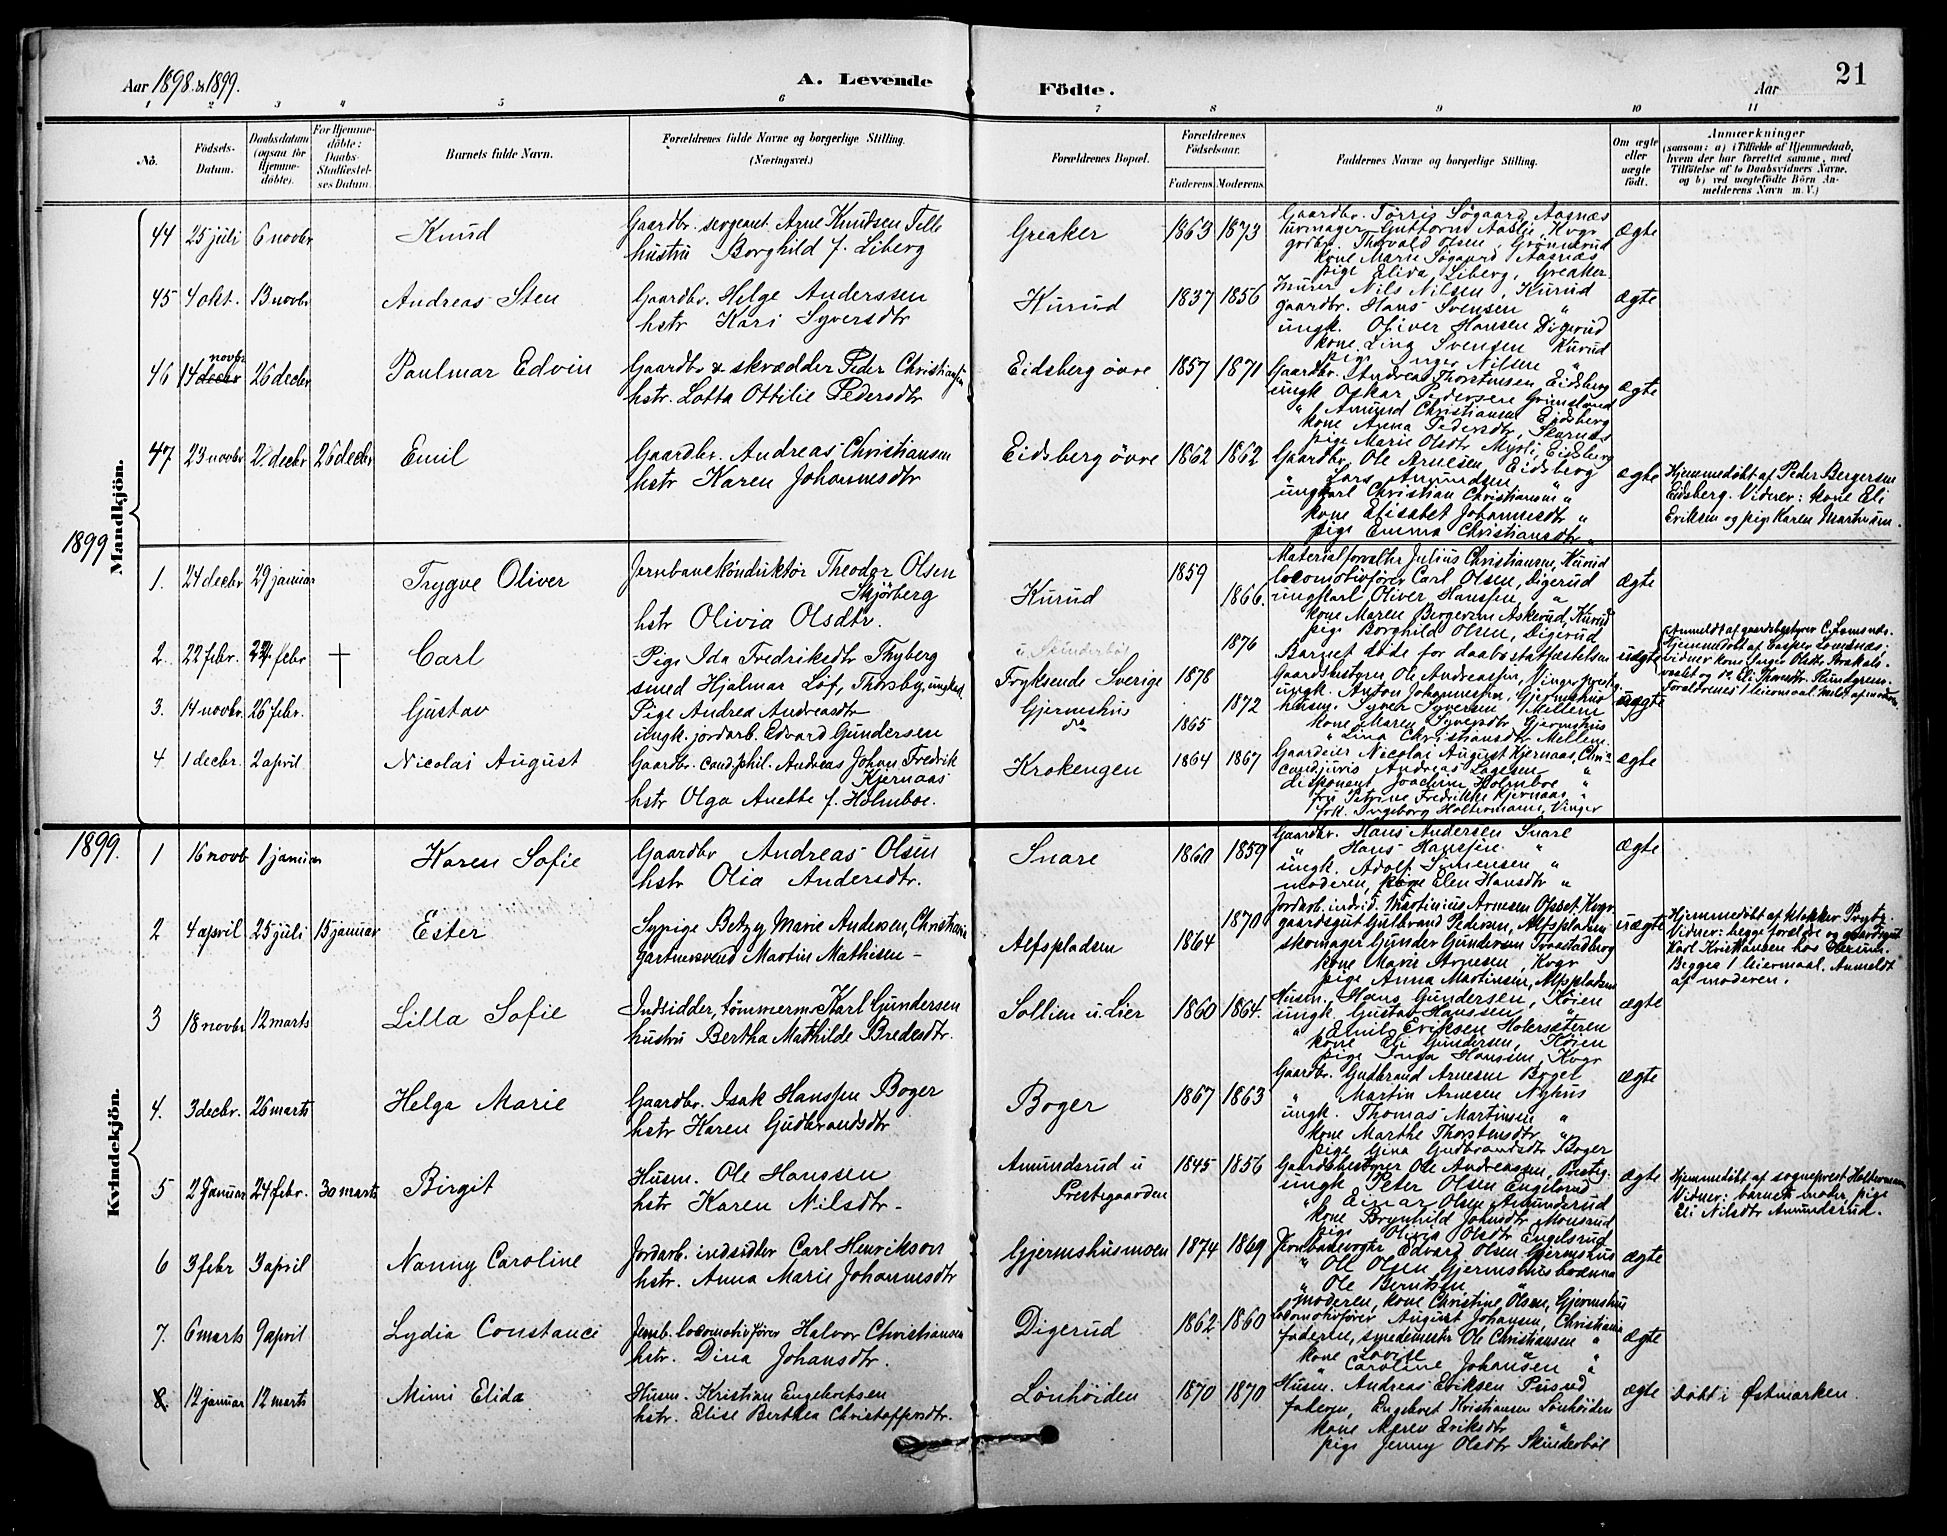 Aar 1898 & 1899.
A. Levende
Födte.
Aar
21
1 2 3 4 5 6 7 8 9 10 11
No.
Födsels-Datum.
Daabsdatum (ogsaa for Hjemme-döbte).
For Hjemme-döbte: Daabs-Stadfæstel-ses Datum.
Barnets fulde Navn.
Forældrenes fulde Navne og borgerlige Stilling. (Næringsvei.)
Forældrenes Bopæl.
Forældrenes Födselsaar.
Faderens. Moderens.
Faddernes Navne og borgerlige Stilling.
Om ægte eller uægte födt.
Anmærkninger (saasom: a) i Tilfælde af Hjemmedaab, hvem der har forrettet samme, med Tilföielse af to Daabsvidners Navne, og b) ved uægtefödte Börn An-melderens Navn m. V.)
Mandkjön.
44 25 juli 6 novbr Knud
Gaardbr. sergeant. Arne Knudsen Tille
hustru Borghild f. Liberg
Greaker 1863 1873
Gaardbr. Törris Søgaard Aasnæs
urmager Guttorm Aaslie, Kvgr
grdbr. Thorvald Olsen, Grønnerud
kone Marie Søgaard Aasnæs
pige Elida Liberg, Greaker
ægte
45 4 okt. 13 novbr Andreas Sten
Gaardbr. Helge Anderssen
hstr Kari Syversdtr
Kurud 1837 1856
Murer Nils Nilsen, Kurud
gaardbr. Hans Svensen "
ungk. Oliver Hansen Digerud
kone Lina Svensen Kurud
pige Inger Nilsen "
ægte
46 14 decbr novbr 26 decbr Paulmar Edvin
Gaardbr & skrædder Peder Christiansen
hstr. Lotta Ottilie Pedersdtr
Eidsberg øvre 1857 1871
Gaardbr. Andreas Thorstensen Eidsberg
ungk Oskar Pedersen Grimsland
" Amund Christiansen Eidsberg
kone Anna Pedersdtr, Skarnæs
pige Marie Olsdtr Myrli, Eidsberg
ægte
47 23 novbr 2 decbr 26 decbr Emil
Gaardbr. Andreas Christiansen
hstr Karen Johannesdtr
Eidsberg øvre 1862 1862
Gaardbr. Ole Arnesen, Eidsberg
" Lars Amundsen "
ungkarl Christian Christiansen "
kone Elisabet Johannesdtr "
pige Emma Christiansdtr "
ægte
Hjemmedøbt af Peder Bergersen
Eidsberg. Vidner: kone Eli
Eriksen og pige Karen Martinsen.
1899
1. 24 decbr 29 januar Trygve Oliver
Jernbanekonduktør Theodor Olsen
Skjørberg
hstr Olivia Olsdtr.
Kurud 1859 1866.
Materialforvalter Julius Christiansen, Kurud
locomotivfører Carl Olsen, Digerud
ungkarl Oliver Hanssen, "
kone Maren Bergersen Askerud, Kurud
pige Borghild Olsen, Digerud
ægte
2. 22 febr. 24 febr † Carl
Pige Ida Fredriksdtr Thyberg
smed Hjalmar Löf, Thorsby, ungkarl
u. Skinderböl
Fryksende Sverige 1876 1878
Barnet døde før daabsstadfæstelsen
uægte
Anmeldt af gaardsbestyrer C. Lomsnæs.
Hjemmedøbt af Casper Lomsnæs;
vidner kone Inger Olsdtr
Forældrenes 1 leiermaal
3. 14 novbr. 26 febr. Gustav
Pige Andrea Andreasdtr
ungk. jordarb. Edvard Gundersen
Gjermshus
do 1872 1865
Gaardsbestyrer Ole Andreassen, Vinger prestg.
ungk. Anton Johannessen, Gjermshus
husm. Syver Syversen, Millem
kone Maren Syversdtr, Gjermshus
" Lina Christiansdtr Millem.
uægte
4. 1 decbr. 2 april Nicolai August
Gaardbr. cand. phil. Andreas Johan Fredrik
Kjernaas
hstr Olga Anette f. Holmboe.
Krokengen 1864 1867
Gaardeier Nicolai August Kjernaas, Chra
cand. juris Andreas Laassen "
disponent Joachim Holmboe "
fru Petrine Fredrikke Kjernaas "
frk. Ingeborg Holtermann, Vinger
ægte
Kvindekjön.
1899.
1 16 novb 1 januar Karen Sofie
Gaardbr Andreas Olsen
hstr Olia Andersdtr.
Snare 1860 1859
Gaardbr. Hans Andersen Snare
" Hans Hanssen. "
ungk. Adolf Simensen "
moderen, kone Elen Hansdtr "
ægte
2 4 april 25 juli 15 januar Ester
Sypige Betzy Marie Andersen, Christiania
Gartnersvend Martin Mathisen -
Alfspladsen 1864 1870
Jordarb. indsid. Martinius Arnesen Opset, Kvgr.
gaardsgut Gulbrand Pedersen, Alfspladsen
skomager Gunder Gundersen Traastadberg
kone Marie Arnesen, Kvgr
pige Anna Martinsen, Alfspladsen
uægte
Hjemmedøbt af klokker Prytz.
Vidner: begge forældre og gaardsgut
Karl Kristiansen hos Barum.
Begges 1 leiermaal. Anmeldt
af moderen.
3 18 novbr 12 marts Lilla Sofie
Indsidder, tømmerm. Karl Gundersen
hustru Bertha Mathilde Bredesdtr.
Sollien u. Lier 1860 1864.
Husm. Hans Gundersen, Köien
ungk. Gustav Hanssen "
" Emil Eriksen Holersæteren
kone Eli Gundersen, Köien
pige Inga Hanssen, Kvgr
ægte
4. 3 decbr. 26 marts Helga Marie
Gaardbr. Isak Hanssen Boger
hstr Karen Gudbrandsdtr
Boger 1867 1863
Gaardbr. Gudbrand Arnesen Boger
" Martin Arnesen Nyhus
ungk. Thomas Martinsen "
kone Marthe Thorstensdtr "
pige Gina Gudbrandsdtr Boger
ægte
5 2 Januar 24 febr. 30 marts Birgit
Husm. Ole Hanssen
hstr Karen Nilsdtr -
Amundsrud u
Prestegaarden 1845 1856
Gaardsbestyrer Ole Andreassen, Prestg.
ungk Peter Olsen Engelsrud
" Einar Olsen Amundsrud
kone Brynhild Johnsdtr Monsrud
pige Olivia Olsdtr Engelsrud
ægte
Hjemmedøbt af sogneprest Holtermann
Vidner: barnets moder, pige
Eli Nilsdtr Amundsrud.
6 3 febr 3 april Nanny Caroline
Jordarb. indsidder Carl Henrikson
hstr. Anna Marie Johannesdtr
Gjermshusmoen 1874 1869
Jernbanevogter Edvard Olsen Gjermshus
" Ole Olsen Gjermshusbrænna
" Ole Berntsen "
moderen, kone Christine Olsen, Gjermshus
ægte
7. 6 marts 9 april Lydia Constance
Jernb. locomotivfører Halvor Christiansen
hstr. Dina Johansdtr.
Digerud 1862 1860
Locomotivfører August Johansen, Christiania
faderen, smedemester Ole Christiansen "
kone Lovise "
" Caroline Johansen "
ægte
8. 12 januar 12 marts Mimi Elida
Husm. Kristian Engebretsen
hstr. Elise Berthea Christoffersdtr.
Lönhöiden 1870 1870
Husm. Andreas Eriksen Pusrud
faderen, Engebret Kristiansen Lönhöiden
kone Maren Eriksdtr "
pige Jenny Olsdtr Skinderböl
ægte
Døbt i Østmarken.